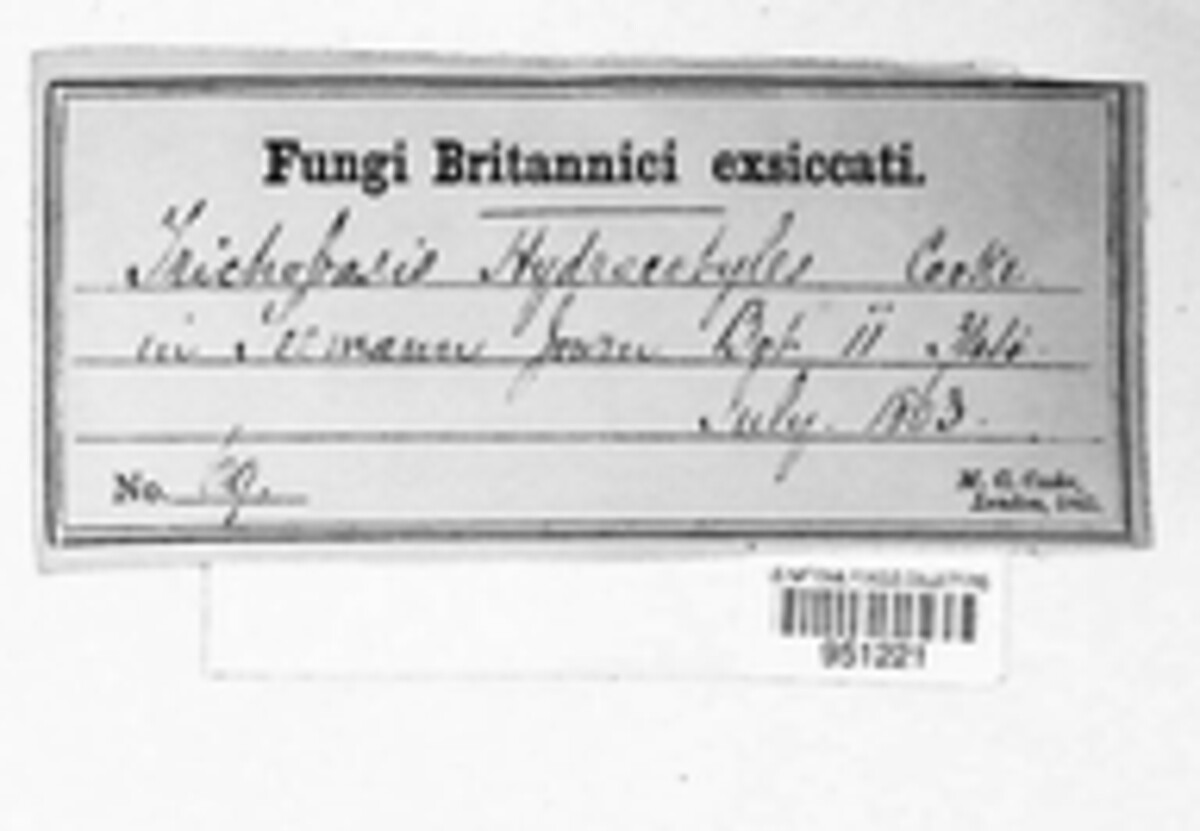 Fungi Britannici exsiccati.
Trichobasis Hydrocotyles Cooke
in Seemann Journ Bot. II
July. 1863.
No.
M. C. Cooke,
London,
951221